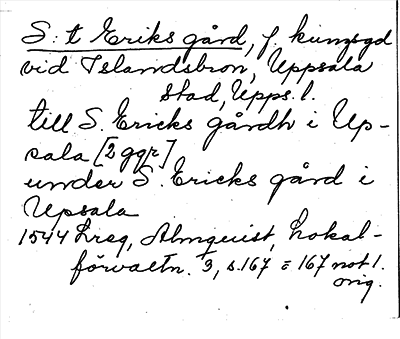 S:t Eriks gård, f. kungsgd
vid Islandsbron, Uppsala
stad, Upps. l.
till S. Ericks gårdh i Up-
sala [2 ggr]
under S. Ericks gård i
Upsala
1544 Lreg, Almquist, Lokal-
förvaltn. 3, s. 167 = 167 not 1.
orig.